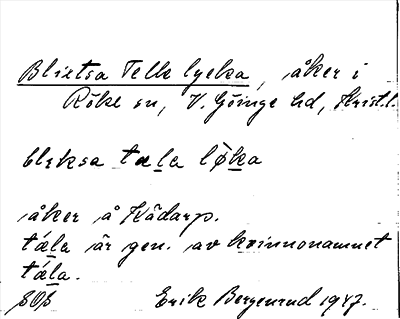 Blixtsa Telle lycka, åker i
Röke sn, V. Göinge hd, Krist.l.
bleksa tæla løka
åker å Kådarp.
tǽla är gen. av kvinnonamnet
tǽla.
Erik Bergenrud 1947.